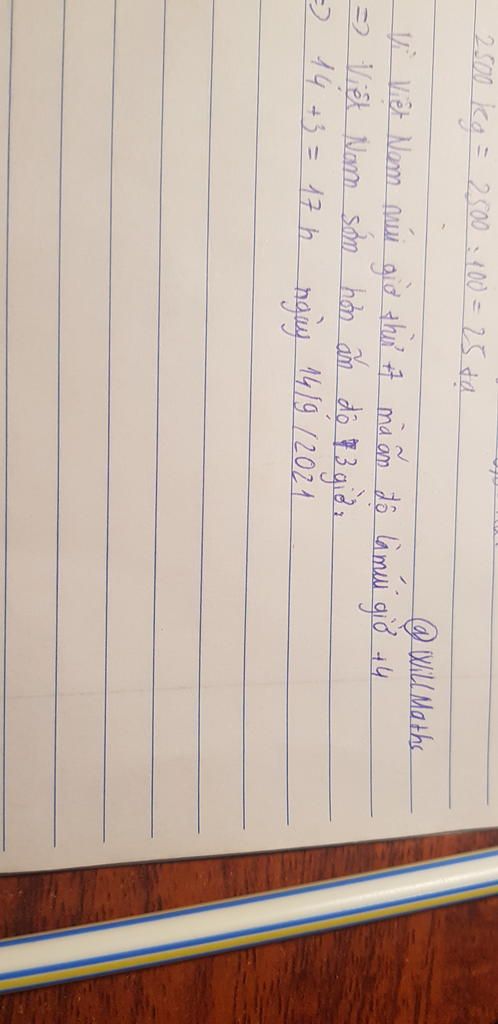 2500 kg = 2500 : 100 = 25 tạ
@WillMaths
Vì Việt Nam múi giờ thứ 7 mà ấn độ là múi giờ +4
=> Việt Nam sớm hơn ấn độ 3 giờ.
=> 14 + 3 = 17 h ngày 14/9/2021